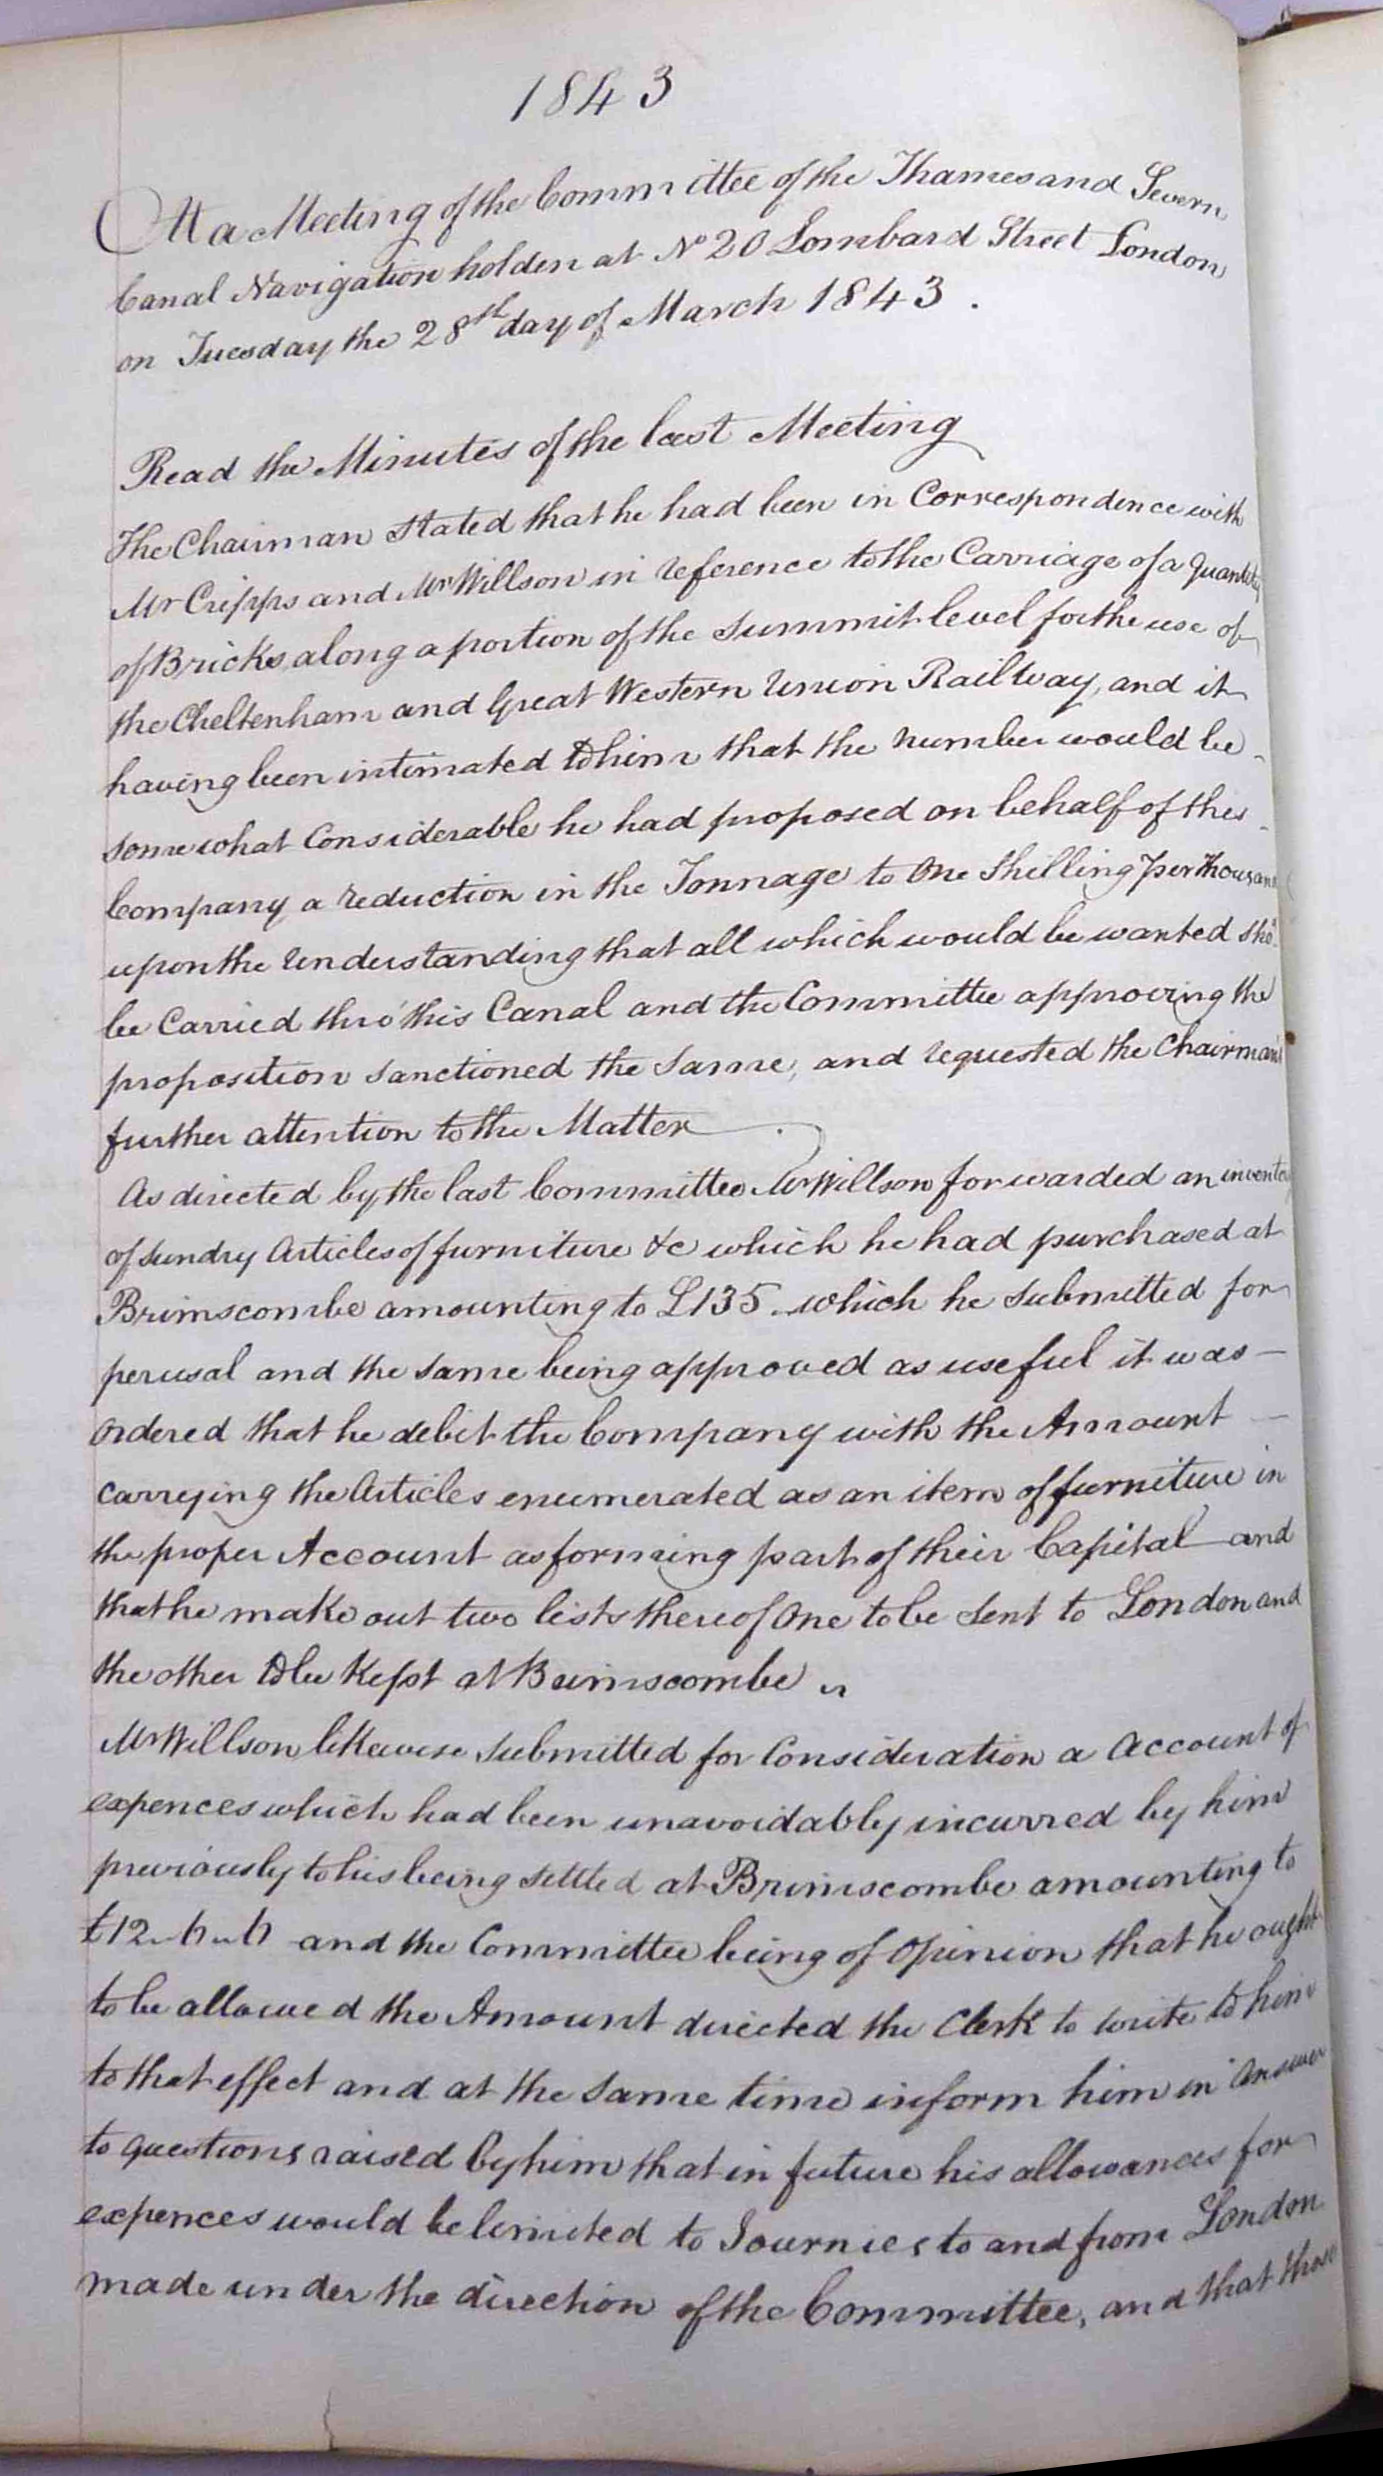 1843
At a Meeting of the Committee of the Thames and Severn
Canal Navigation holden at No 20 Lombard Street London
on Tuesday the 28th day of March 1843.
Read the Minutes of the last Meeting
The Chairman stated that he had been in Correspondence with
Mr Cripps and Mr Willson in reference to the Carriage of a quantity
of Bricks, along a portion of the Summit level for the use of
the Cheltenham and Great Western Union Railway, and it
having been intimated to him that the number would be
somewhat Considerable he had proposed on behalf of this
Company a reduction in the Tonnage to One Shilling per thousand
upon the understanding that all which would be wanted shod
be Carried thro' this Canal and the Committee approving the
proposition sanctioned the same, and requested the Chairman's
further attention to the Matter
As directed by the last Committee Mr Willson forwarded an inventory
of sundry Articles of furniture &c which he had purchased at
Brimscombe amounting to £135. which he submitted for
perusal and the same being approved as useful it was
Ordered that he debit the Company with the Amount
carrying the Articles enumerated as an item of furniture in
the proper Account as forming part of their Capital and
that he make out two lists thereof One to be sent to London and
the other to be Kept at Brimscombe
Mr Willson likewise submitted for Consideration a Account of
expences which had been unavoidably incurred by him
previously to his being settled at Brimscombe amounting to
£12..6..6 and the Committee being of Opinion that he ought
to be allowed the Amount directed the Clerk to write to him
to that effect and at the same time inform him in Answer
to questions raised by him that in future his allowances for
expences would be limited to Journies to and from London
made under the direction of the Committee, and that those